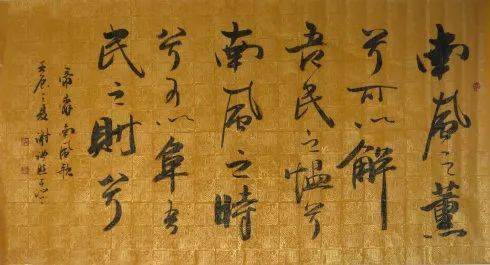 南風之薰
兮可以解
吾民之愠兮
南風之時
兮可以阜吾
民之財兮
帝舜南風歌
壬辰之夏